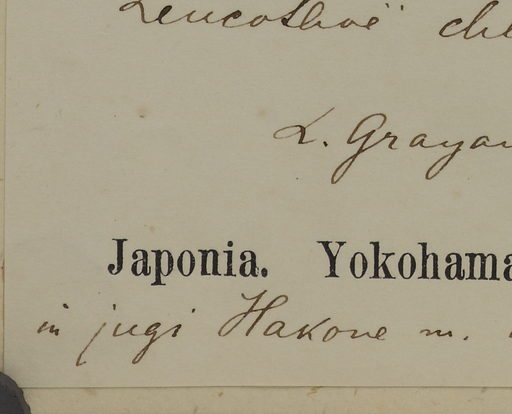 Leucothoë chl
L. Grayan
Japonia. Yokohama
in jugi Hakone m.